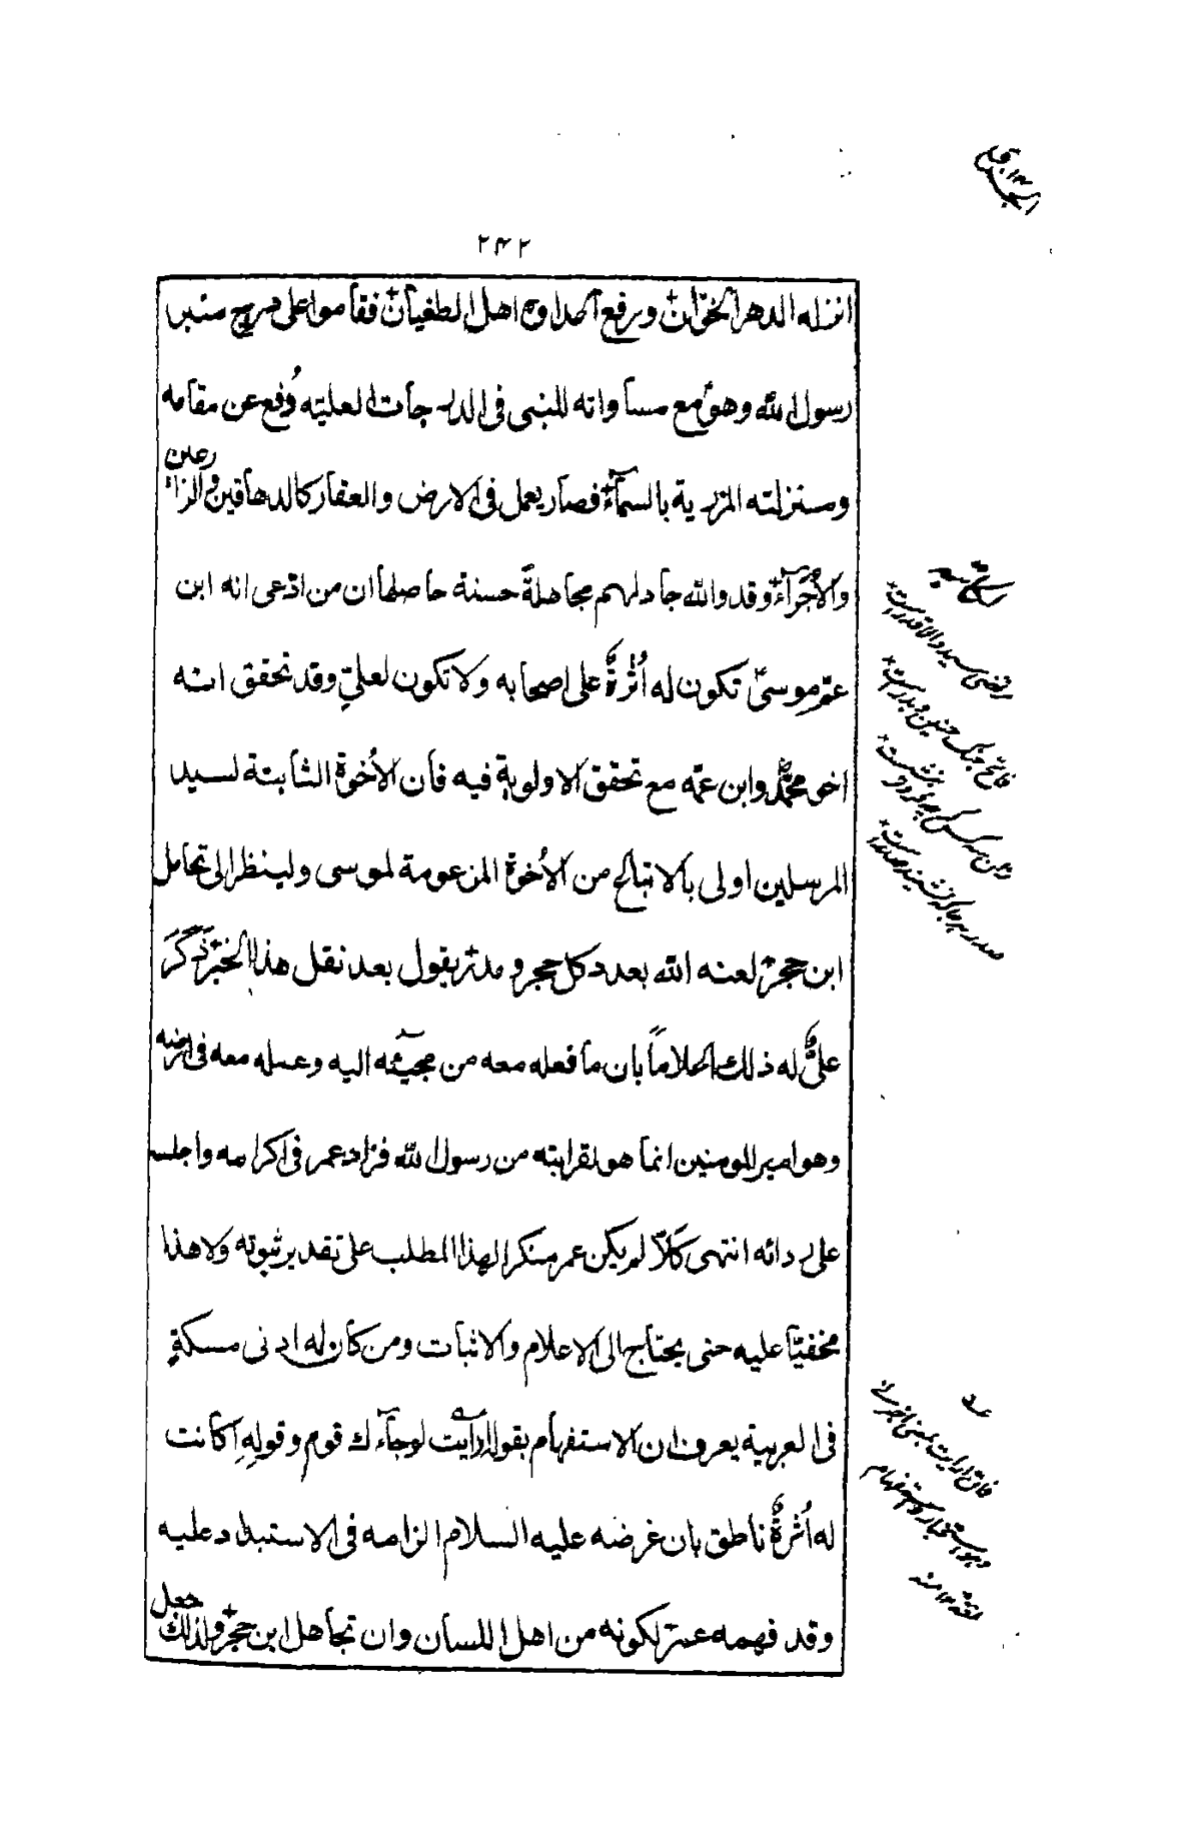 ۲۴۲
انزله الدهر الخوّان ورفع اهل الطغيان فقاموا على مدرج منبر
رسول الله وهو مع مساواته للنبى فى الدرجات العليّه دُفع عن مقامه
ومنزلته المزرية بالسمآء فصار يعمل فى الارض والعقار كالدهاقين والزارعين
والأُجَرآء وقد والله جادلهم مجادلةً حسنة حاصلها ان من ادّعى انه ابن
عمّ موسىٰ تكون له أثرةٌ على اصحابه ولا تكون لعليّ وقد تحقق انه
اخو محمّد وابن عمّه مع تحقق الاولوية فيه فان الأُخوة الثابتة لسيد
المرسلين اولى بالاتباع من الأُخوة المزعومة لموسى ولينظر الى تحامل
ابن حجر لعنه الله بعدد كل حجر ومدر يقول بعد نقل هذا الخبر ذَكَرَ
علىٌّ له ذلك اعلاماً بان ما فعله معه من مجيئه اليه وعمله معه فى ارضه
وهو امير المومنين انما هو لقرابته من رسول الله فزاد عمر فى اكرامه واجلسه
على ردائه انتهى كَلاّ لم يكن عمر منكرا لهذا المطلب على تقدير ثبوته ولا هذا
مخفيّا عليه حتى يحتاج الى الاعلام والاثبات ومن كان له ادنى مسكةٍ
فى العربية يعرف ان الاستفهام بقوله ارأيت لو جآءك قوم وقولِهِ اكانت
له أثرةٌ ناطق بان غرضه عليه السلام الزامه فى الاستبداد عليه
وقد فهمه عمر لكونه من اهل اللسان وان تجاهل ابن حجر ولذلك جعل